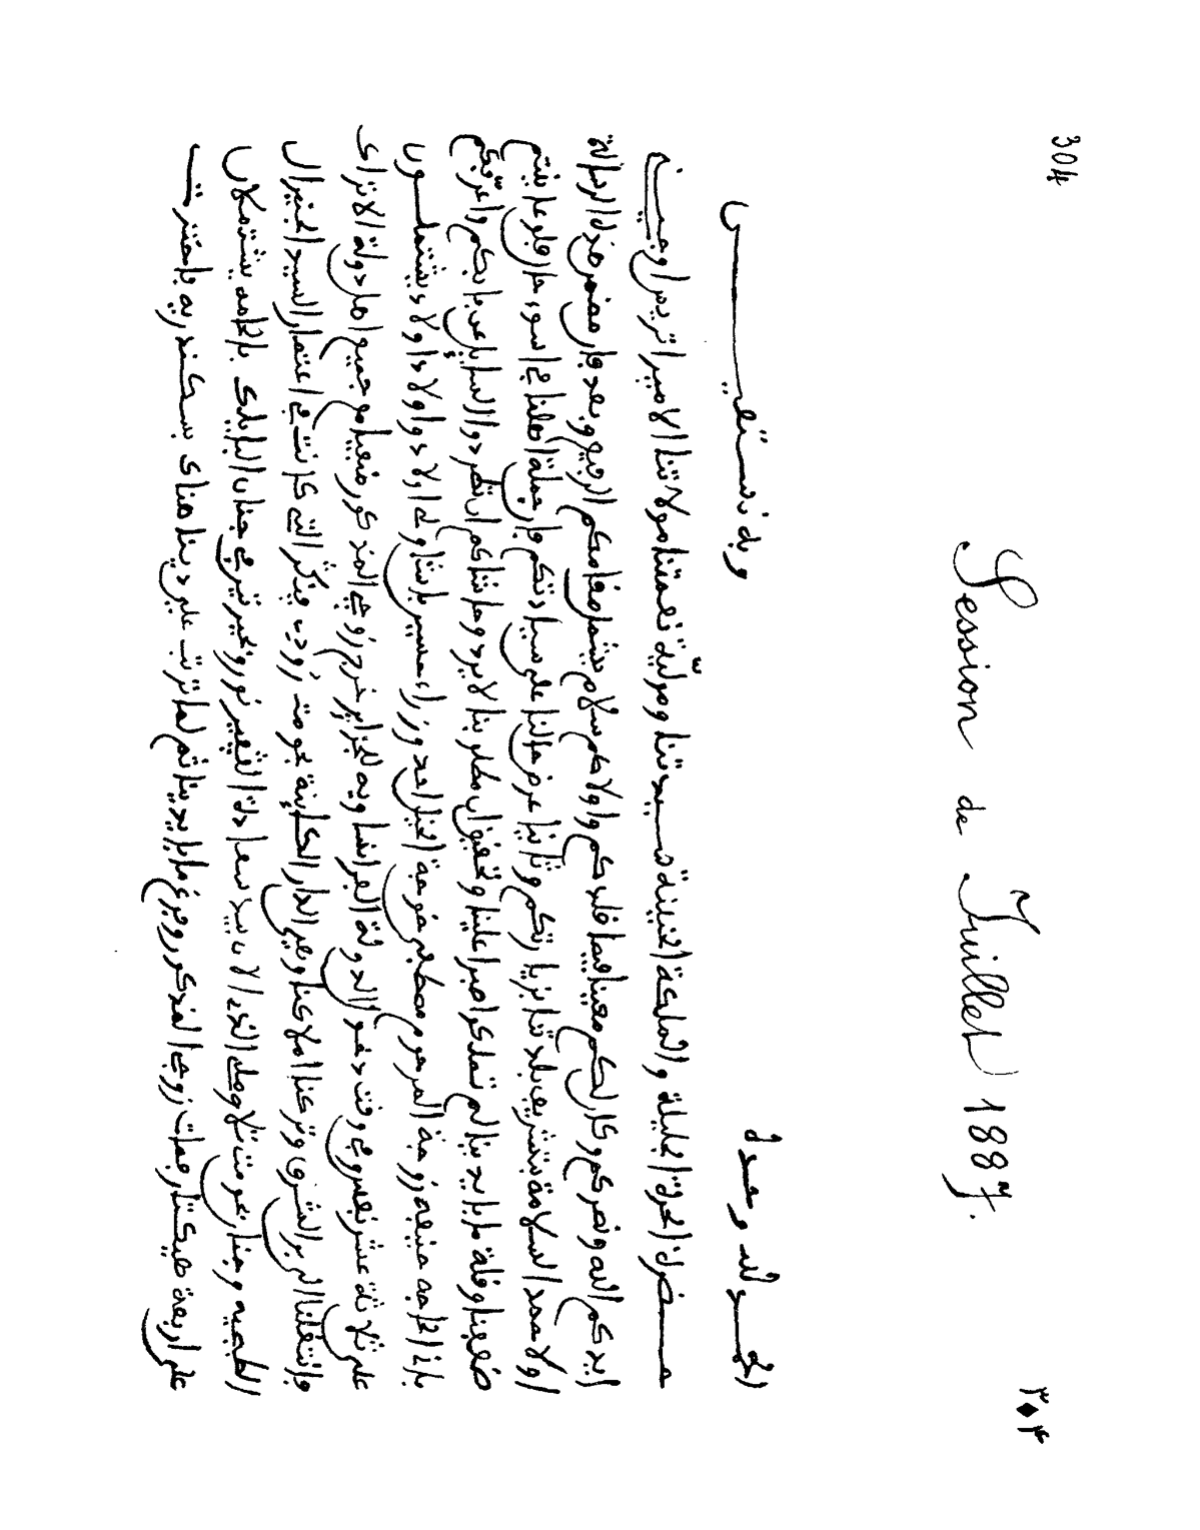 304
٣٠٤
Session de Juillet 1887.
الحمد لله وحده وبه نستعين
حضرة الحرة الجليلة والملكة الحنينة سيدتنا ومولية نعمتنا مولاتنا الامبراتريس اوجينه
ايدكم الله ونصركم وكان لكم معينا فيما قلدكم واولاكم سلام يشمل مقامكم الرفيع وبعد فان مضمر هذه الرسالة
اولا محمد السلامة بتشريف بلدتنا بزيارتكم وثانيا عرض حالنا على سيادتكم فان جملة اهلنا في اسوء حال فلو علمتم
ضعفنا وقلة ما بايدينا لم تملكوا صبرا علينا وتحققوا ان مطلوبنا لا يرد وحاشاكم ان تطردوا السايل عن بابكم واعرفكم
باني الخاجه حنيفه زوجة المرحوم مصطفى خوجة الخيل احد وزراء حسين باشا ولي اولاد واولاد اولاد يشتملون
على ثلاثة عشر نفس وفي وقت دخول الدولة الفرانساويه للجزاير خرج زوجي المذكور منفيا مع جميع اهل دولة الاتراك
وانتقلنا الى بر الشرق وتركنا املاكنا وهي الدار الكاينة بحومت زودت فينكر التي كانت في اعتمار السيد الجنيرال
الطبجيه وجنان بحومت تلاوملي الذي الان بيد سعادة القبير نور وغير تير في جنان البايلك بالحامه يشتملان
على اربعة صيكتار فمات زوجي المذكور وفرغ ما بايدينا ثم لما ترتب علي دينا هناك بسكندريه باحتفرت